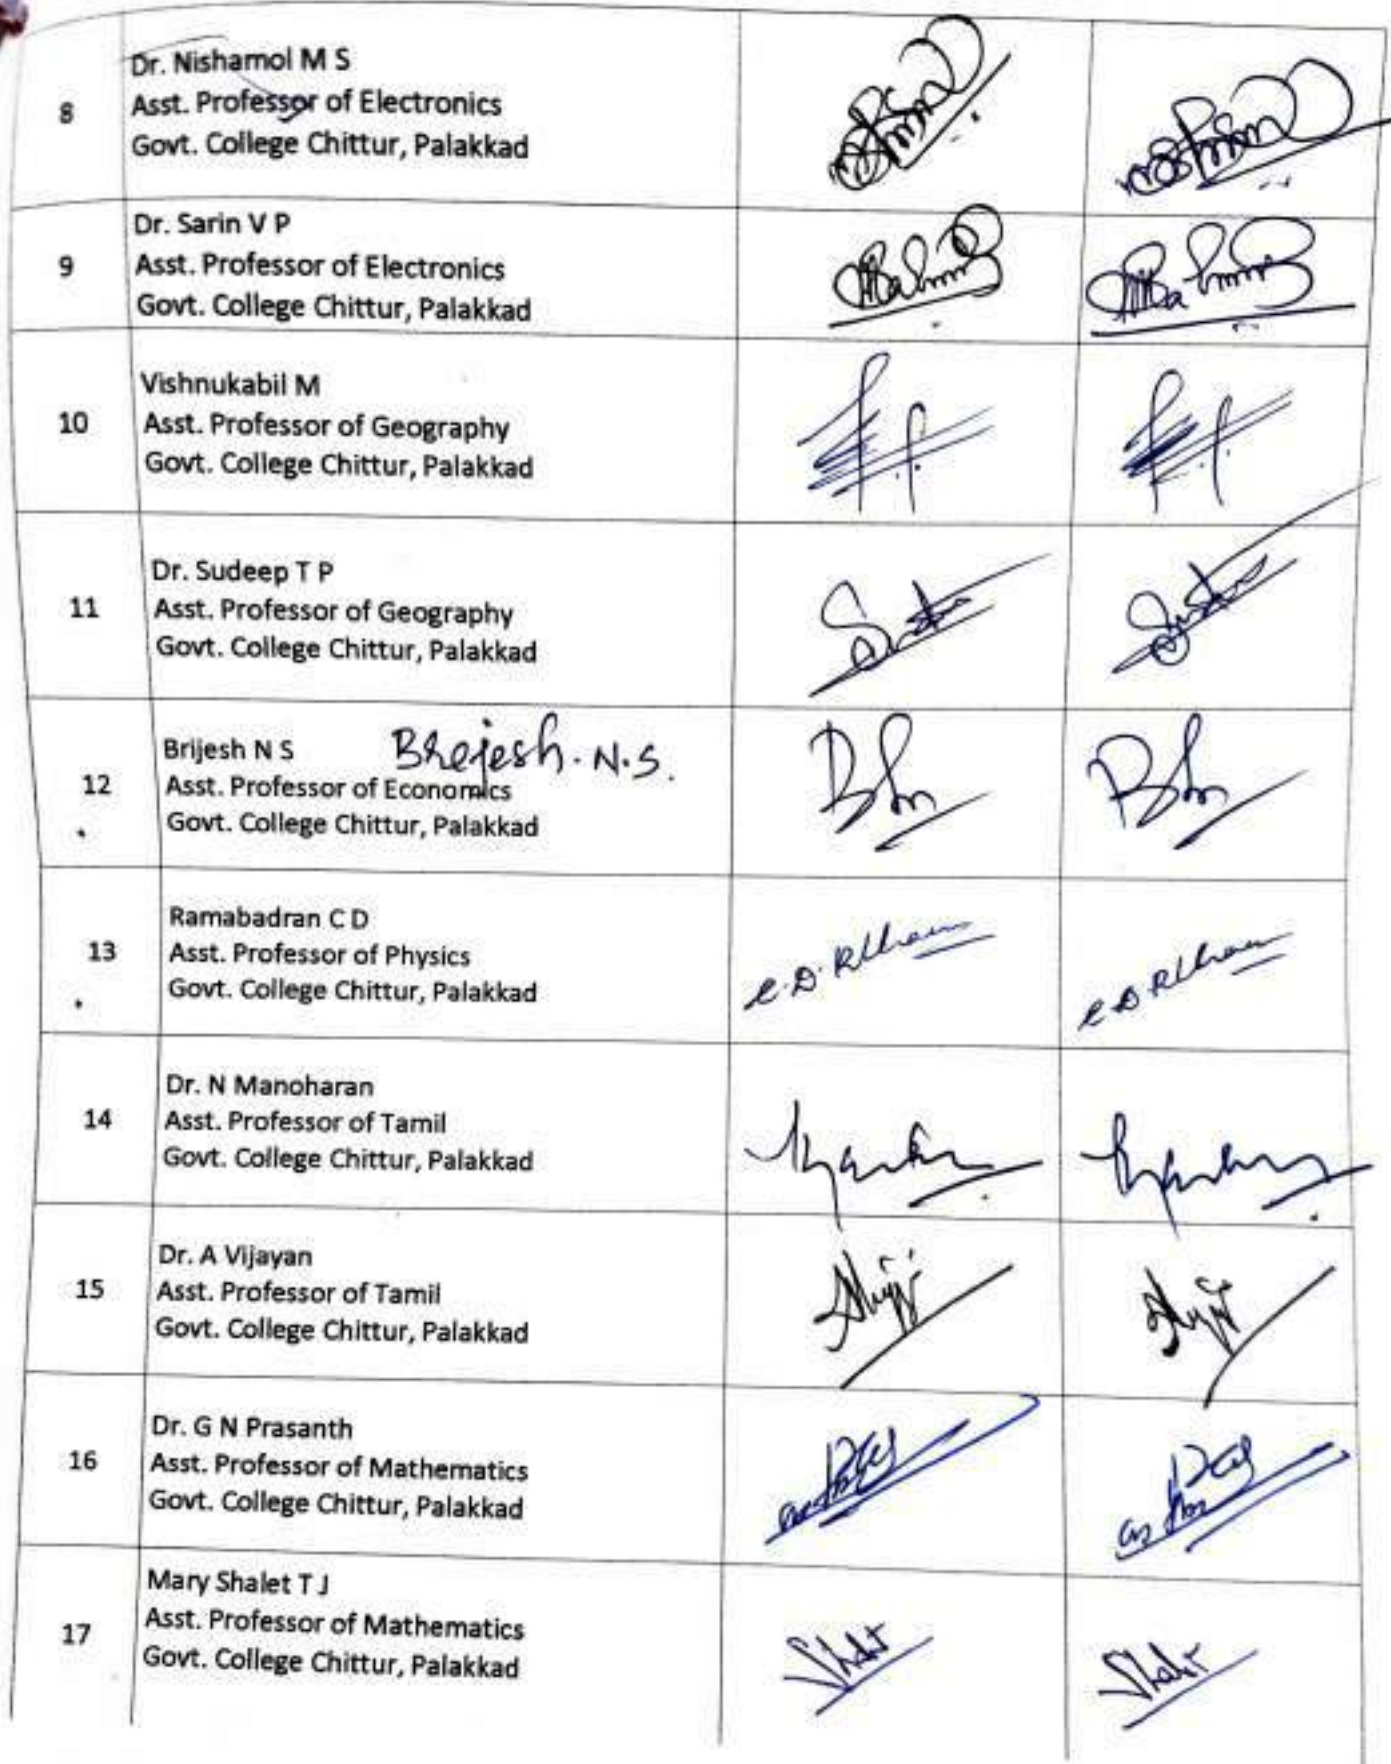 8
Dr. Nishamol M S
Asst. Professor of Electronics
Govt. College Chittur, Palakkad
9
Dr. Sarin V P
Asst. Professor of Electronics
Govt. College Chittur, Palakkad
10
Vishnukabil M
Asst. Professor of Geography
Govt. College Chittur, Palakkad
11
Dr. Sudeep T P
Asst. Professor of Geography
Govt. College Chittur, Palakkad
12
Brijesh N S Brejesh. N.S.
Asst. Professor of Economics
Govt. College Chittur, Palakkad
13
Ramabadran C D
Asst. Professor of Physics
Govt. College Chittur, Palakkad
14
Dr. N Manoharan
Asst. Professor of Tamil
Govt. College Chittur, Palakkad
15
Dr. A Vijayan
Asst. Professor of Tamil
Govt. College Chittur, Palakkad
16
Dr. G N Prasanth
Asst. Professor of Mathematics
Govt. College Chittur, Palakkad
17
Mary Shalet T J
Asst. Professor of Mathematics
Govt. College Chittur, Palakkad